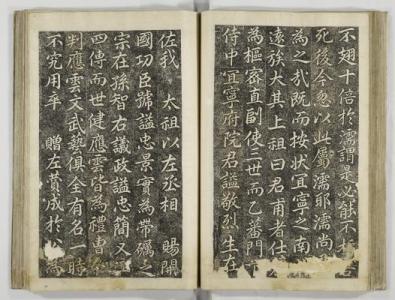 不翅十倍於濡謂是必能不朽
死後今忽以此屬濡耶濡尚
為之哉既而按狀宜寧之南
遠族大其上祖曰君甫者仕
為樞密直副使三世而乙蕃門
侍中宜寧府院君諡敬烈生在
佐我 太祖以左丞相 賜開
國功臣號諡忠景實為帶礪之
宗在孫智右議政諡忠簡又
四傳而世健應雲皆為禮曹
判應雲文武藝俱全有名一時
不究用卒 贈左贊成於